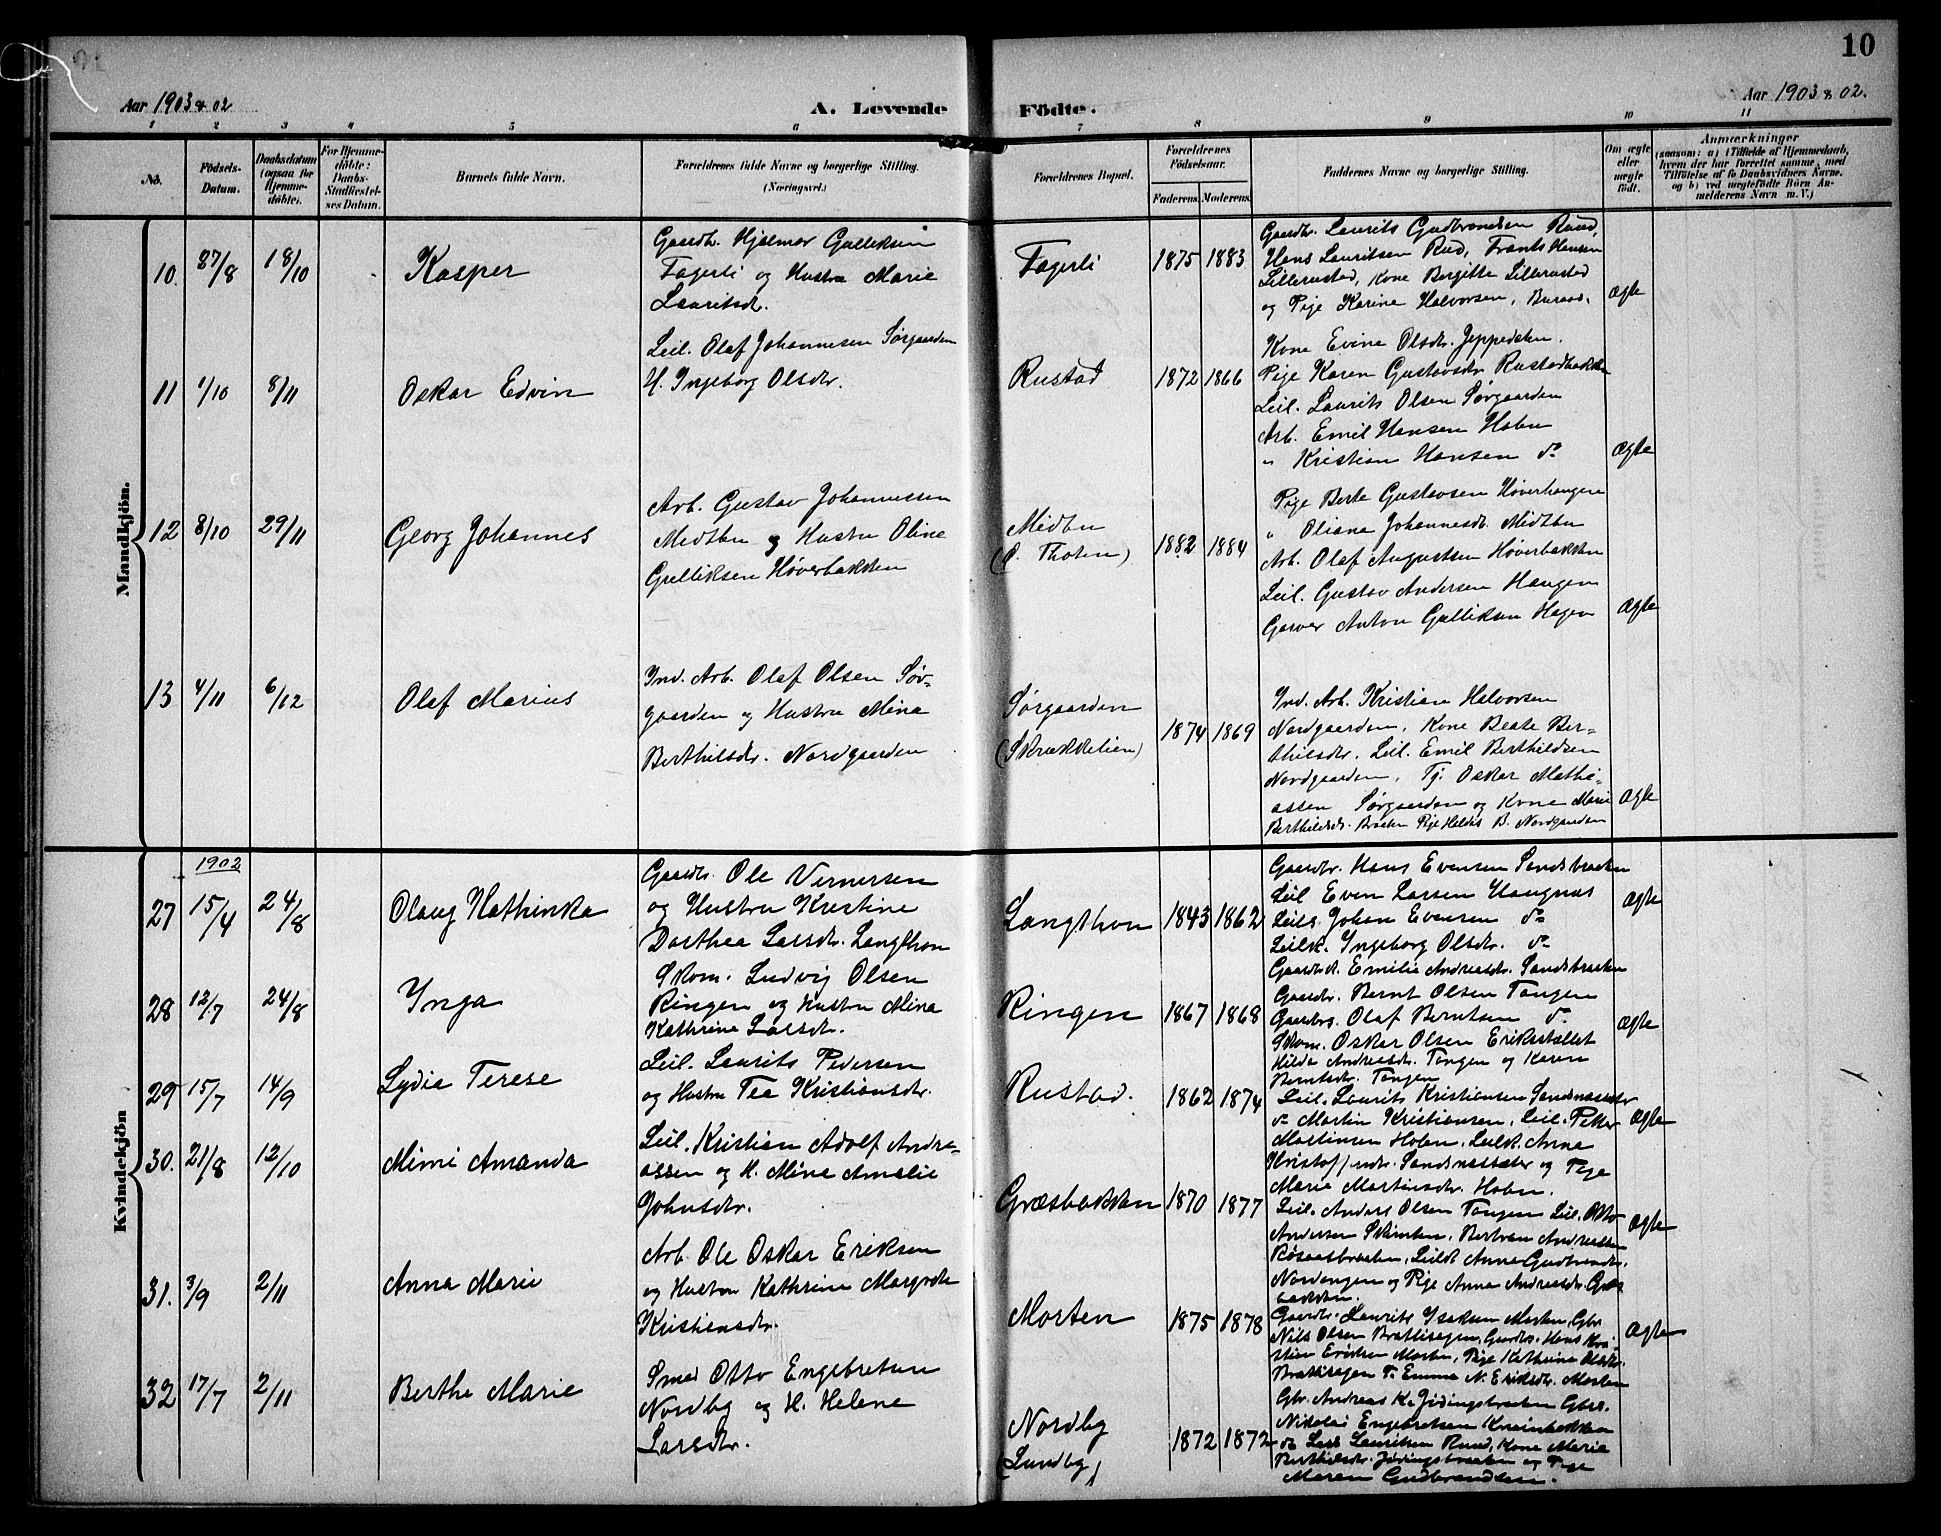 10
Aar 1903 & 02
A. Levende
Födte.
Aar 1903 & 02.
1 2 3 4 5 6 7 8 9 10 11
No.
Födsels-
Datum.
Daabsdatum
(ogsaa for
Hjemme-
döbte).
For Hjemme-
döbte:
Daabs-
Stadfæstel-
ses Datum.
Barnets fulde Navn.
Forældrenes fulde Navne og borgerlige Stilling.
(Næringsvei.)
Forældrenes Bopæl.
Forældrenes
Födselsaar.
Faderens. Moderens.
Faddernes Navne og borgerlige Stilling.
Om ægte
eller
uægte
födt.
Anmærkninger
(saasom: a) (Tilfælde af Hjemmedaab,
hvem der har forrettet samme, med
Tilföielse af to Daabsvidners Navne.
og b) ved uægtefödte Börn An-
melderens Navn m. V.)
Mandkjön.
10. 27/8 18/10 Kasper
Gaardbr. Hjalmar Gulliksen
Fagerli og Hustru Marie
Lauritsdr.
Fagerli 1875 1883
Gaardbr. Laurits Gudbrandsen Ruud,
Hans Lauritsen Rud, Frants Hansen
Lillerustad, Kone Bergitte Lillerustad
og Pige Karine Halvorsen,
Ægte
11 1/10 8/11 Oskar Edvin
Leil. Olaf Johannesen Sørgaarden
H. Ingeborg Olsdr.
Rustad 1872 1866
Kone Evine Olsdr. Jeppedalen.
Pige Karen Gustavsdr. Rustadbakken
Leil. Laurits Olsen Sørgaarden
Arb. Emil Hansen Holen
" Kristian Hansen do
Ægte
12 8/10 29/11 Georg Johannes
Arb. Gustav Johannessen
Midtbu og Hustru Oline
Gulliksen Høverbakken
Midtbu
(Ø. Thoten)
1882 1884
Pige Berte Gustavsen Høverhaugen
" Oliana Johannesdr. Midtbu
Arb. Olaf Augustsen Høverbakken
Leil. Gustav Andersen Haugen
Garver Anton Gulliksen Hagen
Ægte
13 4/11 6/12 Olaf Marius
Ind. Arb. Olaf Olsen Sør-
gaarden og Hustru Mina
Berthilsdr. Nordgaarden
Sørgaarden
(Skrukkelien)
1874 1869
Ind. Arb. Kristian Halvorsen
Nordgaarden, Kone Beate Ber-
thilsdr. Leil. Emil Berthildsen
Nordgaarden, Tj. Oskar Mathi-
assen Sørgaarden og Kone Marie
Berthildsdr. Braaten Pige Hilda B. Nordgaarden
Ægte
Kvindekjön
1902
27 15/4 24/8 Olaug Kathinka
Gaardbr. Ole Vernersen
og Hustru Kristine
Dorthea Larsdr. Langthon
Langthon 1843 1862
Gaardbr. Hans Evensen Sandsbraaten
Leil Even Larsen Haugnæs
Leils. Johan Evensen do
Leilk. Ingeborg Olsdr. do
Gaardbk. Emilie Andreasdr. Sandsbraaten
Ægte
28 12/7 24/8 Inga
Skom. Ludvig Olsen
Ringen og Hustru Mina
Kathrine Larsdr.
Ringen 1867 1868
Gaardbr. Bernt Olsen Tangen
Gaardbrs. Olaf Berntsen do
Skom. Oskar Olsen Erikstallet
Hilda Andreasdr. Tangen og Karen
Berntsdr. Tangen
Ægte
29 15/7 14/9 Lydia Terese
Leil. Laurits Pedersen
og Hustru Tea Kristiansdr.
Rustad. 1862 1874
Leil. Laurits Kristiansen Sandnessæter
do Martin Kristiansen, Leil. Petter
Martinsen Holen, Leilk. Anne
Kristoffersdr. Sandnessæter og Pige
Marie Martinsdr. Holen.
Ægte
30. 21/8 12/10 Mimi Amanda
Leil. Kristian Adolf Andre-
assen og H. Mina Amalie
Johnsdr.
Græsbakken 1870 1877
Leil. Anders Olsen Tangen Leil. Otto
Andersen Bertran Andreassen
Røsaasbraaten, Leilk Anne Gudbrandsdr.
Nordengen og Pige Anna Andreasdr. Græs
bakken.
Ægte
31. 3/9 2/11 Anna Marie
Arb. Ole Oskar Eriksen
og Hustru Kathrine Margrethe
Kristiansdr.
Morten 1875 1878
Gaardbr. Laurits Isaksen Morten, Gbr.
Nils Olsen Brattisegen, Gaardbr. Hans Kri-
stian Eriksen Morten, Pige Kathrine Olsdr.
Brattisegen P. Emma N. Eriksdr. Morten
Ægte
32 17/7 2/11 Berthe Marie
Smed Otto Engebretsen
Nordby og H. Helene
Larsdr.
Nordby
(Lundby)
1872 1872
Gbr. Andreas K. Jødingsbraaten Gbrs.
Nikolai Engebretsen
do Lars Lauritsen Ruud, Kone Marie
Berthilsdr. Jødingsbraaten og Pige
Maren Gudbrandsen.